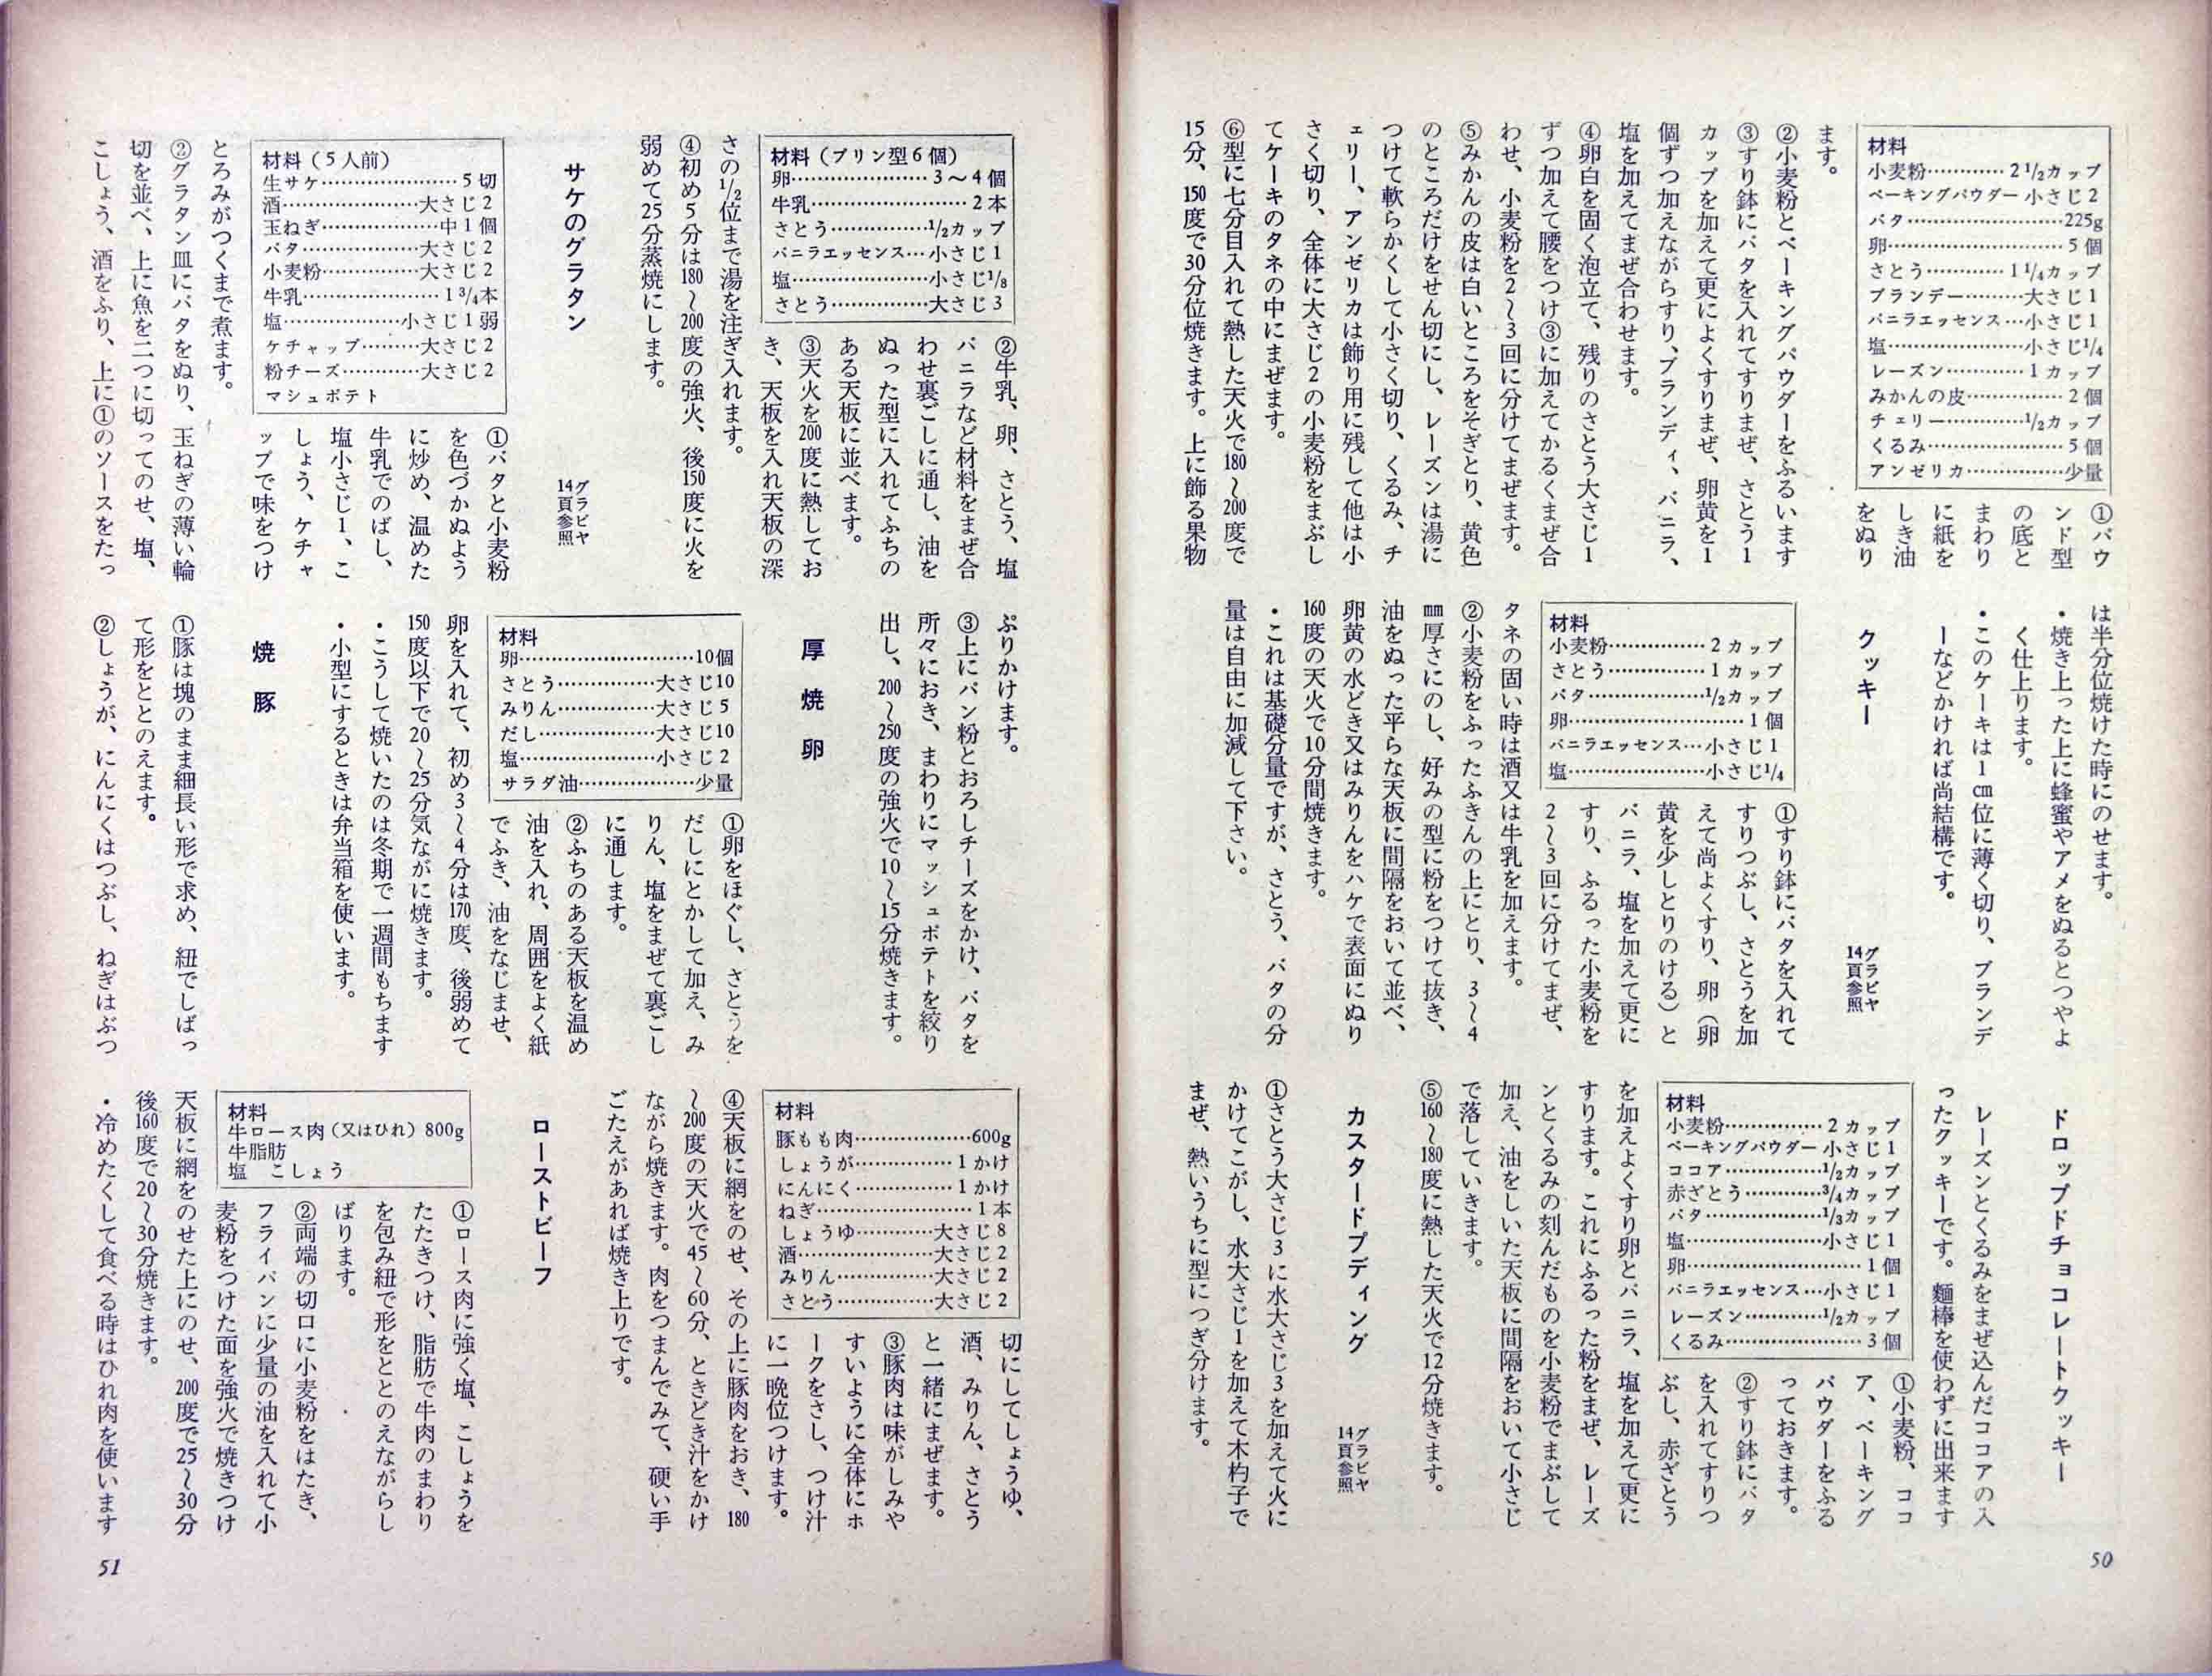 材料
小麦粉…………2 1/2カップ
ベーキングパウダー 小さじ2
バタ…………………225g
卵……………………5個
さとう…………1 1/4カップ
ブランデー………大さじ1
バニラエッセンス…小さじ1
塩………………小さじ1/4
レーズン…………1カップ
みかんの皮……………2個
チェリー…………1/2カップ
くるみ…………………5個
アンゼリカ……………少量
①パウ
ンド型
の底と
まわり
に紙を
しき油
をぬり
ます。
②小麦粉とベーキングパウダーをふるいます
③すり鉢にバタを入れてすりまぜ、さとう1
カップを加えて更によくすりまぜ、卵黄を1
個ずつ加えながらすり、ブランディ、バニラ、
塩を加えてまぜ合わせます。
④卵白を固く泡立て、残りのさとう大さじ1
ずつ加えて腰をつけ③に加えてかるくまぜ合
わせ、小麦粉を2〜3回に分けてまぜます。
⑤みかんの皮は白いところをそぎとり、黄色
のところだけをせん切にし、レーズンは湯に
つけて軟らかくして小さく切り、くるみ、チ
ェリー、アンゼリカは飾り用に残して他は小
さく切り、全体に大さじ2の小麦粉をまぶし
てケーキのタネの中にまぜます。
⑥型に七分目入れて熱した天火で180〜200度で
15分、150度で30分位焼きます。上に飾る果物
は半分位焼けた時にのせます。
・焼き上った上に蜂蜜やアメをぬるとつやよ
く仕上ります。
・このケーキは1cm位に薄く切り、ブランデ
ーなどかければ尚結構です。
クッキー
グラビヤ
14頁参照
材料
小麦粉……………2カップ
さとう……………1カップ
バタ……………1/2カップ
卵……………………1個
バニラエッセンス…小さじ1
塩…………………小さじ1/4
①すり鉢にバタを入れて
すりつぶし、さとうを加
えて尚よくすり、卵（卵
黄を少しとりのける）と
バニラ、塩を加えて更に
すり、ふるった小麦粉を
2〜3回に分けてまぜ、
タネの固い時は酒又は牛乳を加えます。
②小麦粉をふったふきんの上にとり、3〜4
mm厚さにのし、好みの型に粉をつけて抜き、
油をぬった平らな天板に間隔をおいて並べ、
卵黄の水どき又はみりんをハケで表面にぬり
160度の天火で10分間焼きます。
・これは基礎分量ですが、さとう、バタの分
量は自由に加減して下さい。
ドロップドチョコレートクッキー
レーズンとくるみをまぜ込んだココアの入
ったクッキーです。麺棒を使わずに出来ます
材料
小麦粉……………2カップ
ベーキングパウダー 小さじ1
ココア……………1/2カップ
赤ざとう…………3/4カップ
バタ………………1/3カップ
塩…………………小さじ1
卵……………………1個
バニラエッセンス…小さじ1
レーズン…………1/2カップ
くるみ…………………3個
①小麦粉、ココ
ア、ベーキング
パウダーをふる
っておきます。
②すり鉢にバタ
を入れてすりつ
ぶし、赤ざとう
を加えよくすり卵とバニラ、塩を加えて更に
すります。これにふるった粉をまぜ、レーズ
ンとくるみの刻んだものを小麦粉でまぶして
加え、油をしいた天板に間隔をおいて小さじ
で落していきます。
⑤160〜180度に熱した天火で12分焼きます。
カスタードプディング
グラビヤ
14頁参照
①さとう大さじ3に水大さじ3を加えて火に
かけてこがし、水大さじ1を加えて木杓子で
まぜ、熱いうちに型につぎ分けます。
50
材料（プリン型6個）
卵…………………3〜4個
牛乳……………………2本
さとう……………1/2カップ
バニラエッセンス…小さじ1
塩…………………小さじ1/8
さとう……………大さじ3
②牛乳、卵、さとう、塩
バニラなど材料をまぜ合
わせ裏ごしに通し、油を
ぬった型に入れてふちの
ある天板に並べます。
③天火を200度に熱してお
き、天板を入れ天板の深
さの1/2位まで湯を注ぎ入れます。
④初め5分は180〜200度の強火、後150度に火を
弱めて25分蒸焼にします。
サケのグラタン
グラビヤ
14頁参照
材料（5人前）
生サケ…………………5切
酒…………………大さじ2
玉ねぎ………………中1個
バタ………………大さじ2
小麦粉……………大さじ2
牛乳…………………1 3/4本
塩………………小さじ1弱
ケチャップ………大さじ2
粉チーズ…………大さじ2
マシュポテト
①バタと小麦粉
を色づかぬよう
に炒め、温めた
牛乳でのばし、
塩小さじ1、こ
しょう、ケチャ
ップで味をつけ
とろみがつくまで煮ます。
②グラタン皿にバタをぬり、玉ねぎの薄い輪
切を並べ、上に魚を二つに切ってのせ、塩、
こしょう、酒をふり、上に①のソースをたっ
ぷりかけます。
③上にパン粉とおろしチーズをかけ、バタを
所々におき、まわりにマッシュポテトを絞り
出し、200〜250度の強火で10〜15分焼きます。
厚焼卵
材料
卵………………………10個
さとう……………大さじ10
みりん……………大さじ5
だし………………大さじ10
塩…………………小さじ2
サラダ油………………少量
①卵をほぐし、さとうを
だしにとかして加え、み
りん、塩をまぜて裏ごし
に通します。
②ふちのある天板を温め
油を入れ、周囲をよく紙
でふき、油をなじませ、
卵を入れて、初め3〜4分は170度、後弱めて
150度以下で20〜25分気ながに焼きます。
・こうして焼いたのは冬期で一週間もちます
・小型にするときは弁当箱を使います。
焼豚
①豚は塊のまま細長い形で求め、紐でしばっ
て形をととのえます。
②しょうが、にんにくはつぶし、ねぎはぶつ
材料
豚もも肉………………600g
しょうが……………1かけ
にんにく……………1かけ
ねぎ……………………1本
しょうゆ…………大さじ8
酒…………………大さじ2
みりん……………大さじ2
さとう……………大さじ2
切にしてしょうゆ、
酒、みりん、さとう
と一緒にまぜます。
③豚肉は味がしみや
すいように全体にホ
ークをさし、つけ汁
に一晩位つけます。
④天板に網をのせ、その上に豚肉をおき、180
〜200度の天火で45〜60分、ときどき汁をかけ
ながら焼きます。肉をつまんでみて、硬い手
ごたえがあれば焼き上りです。
ローストビーフ
材料
牛ロース肉（又はひれ）800g
牛脂肪
塩 こしょう
①ロース肉に強く塩、こしょうを
たたきつけ、脂肪で牛肉のまわり
を包み紐で形をととのえながらし
ばります。
②両端の切口に小麦粉をはたき、
フライパンに少量の油を入れて小
麦粉をつけた面を強火で焼きつけ
天板に網をのせた上にのせ、200度で25〜30分
後160度で20〜30分焼きます。
・冷めたくして食べる時はひれ肉を使います
51